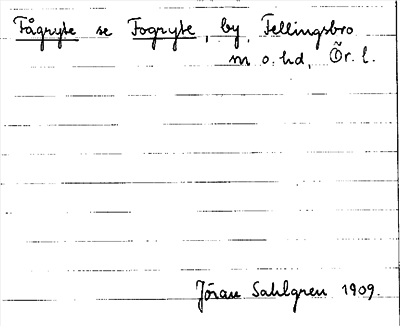 Fågryte se Fogryte, by, Fellingsbro
sn o. hd, Ör. l.
Jöran Sahlgren 1909.